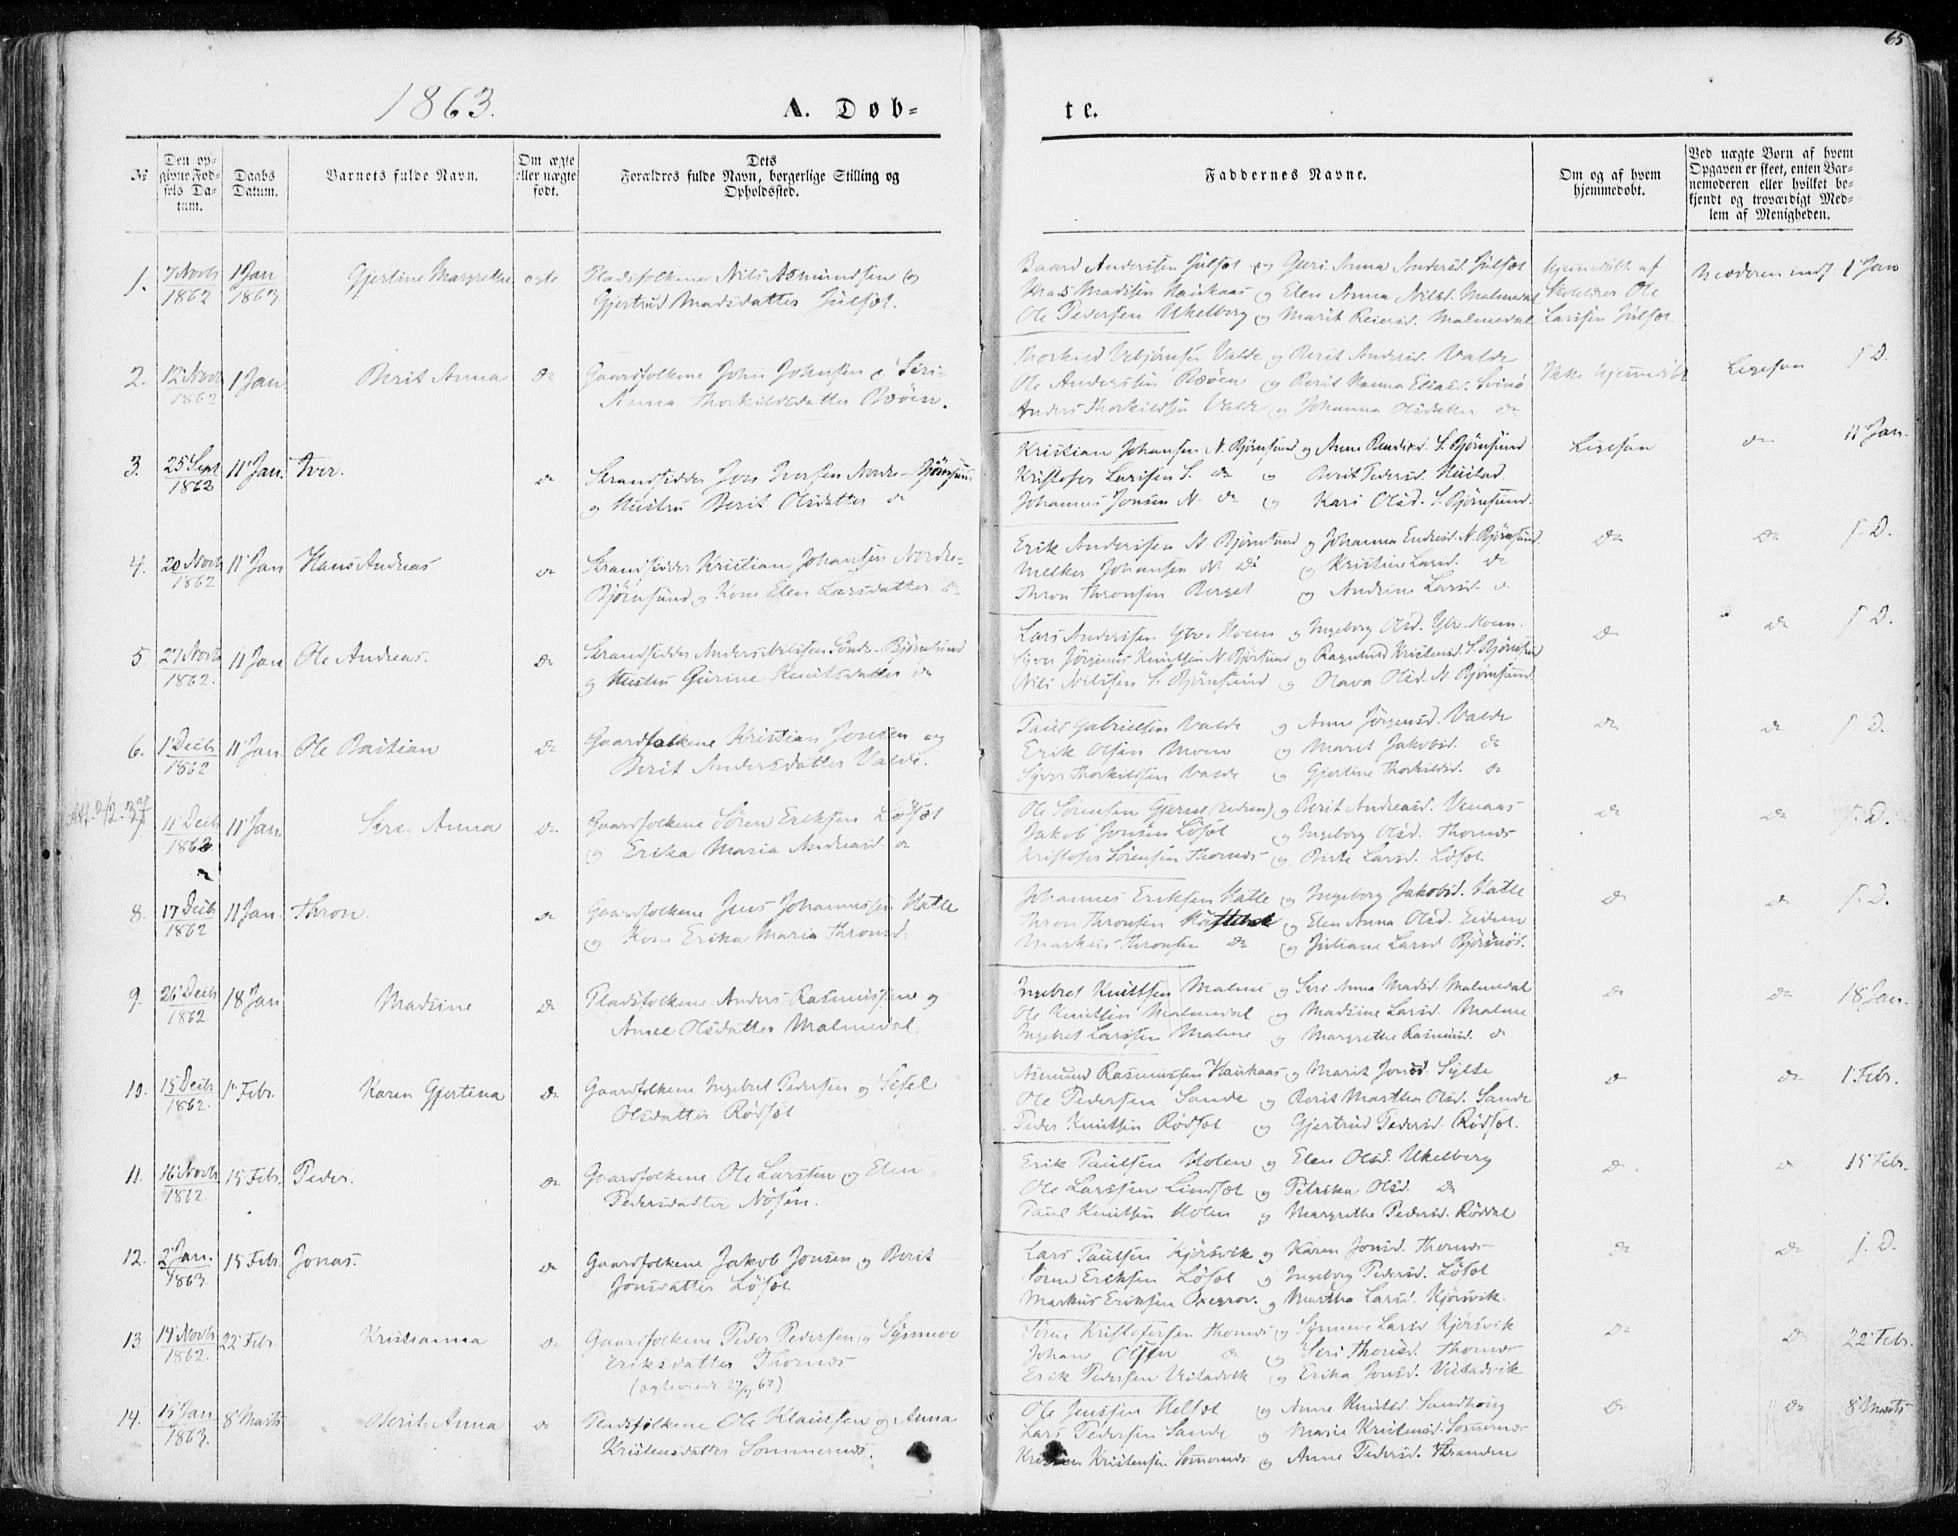 65
1863.
A. Døb-
te.
№
Den op-
givne Fød-
sels Da-
tum.
Daabs
Datum.
Barnets fulde Navn.
Om ægte
eller uægte
født.
Dets
Forældres fulde Navn, borgerlige Stilling og
Opholdssted.
Faddernes Navne.
Om og af hvem
hjemmedøbt.
Ved uægte Børn af hvem
Opgaven er skeet, enten Bar-
nemoderen eller hvilket be-
kjendt og troværdigt Med-
lem af Menigheden.
1. 7 Novb 1862 1 Jan 1863 Gjertine Margrethe ægte Pladsfolkene Nils Asmundsen og
Gjertrud Madsdatter Julsæt.
Baard Anderssen Julsæt og Guri Anna Andersd. Julsæt
Mads Madssen Haukaas og Elen Anna Nilsd. Malmedal
Ole Pedersen Ukelberg og Marit Reiersd. Malmedal
hjemmedøbt af
Skoleholder Ole
Larssen Julsæt.
1 Jan
2. 12 Novb 1862 1 Jan. Berit Anna Do Gaardfolkene John Johnsen & Siri-
Anna Thorkildsdatter Bøen.
Valde og Berit Andersd. Valde
Ole Anderssen Bøen og Berit Hanna Eliasd. Svinø
Anders Thorkildsen Valde og Johanna Olsdatter Do
Ikke hjemmedøbt
Ligesaa
S. D.
3. 25 Sept 1862 11 Jan. Iver. Do Strandsidder Jon Iversen Nordre-Bjørnsund
og Hustru Berit Olsdatter Do
Kristian Johansen N. Bjørnsund og Anne S. Bjørnsund
Kristofer Larssen S. Do og Berit Pedersd. Hustad.
Johannes Jonsen N. Do og Kari Olsd. S. Bjørnsund.
Ligesaa
Do
11 Jan.
4. 20 Novb 1862 11 Jan Hans Andreas Do Strandsidder Kristian Johansen Nordre-
Bjørnsund og Kone Elen Larsdatter Do
Erik Anderssen N. Bjørnsund og Johanna Endresd. N. Bjørnsund
Melker Johansen N. Do og Kristine Larsd. Do
Thron Thronsen Berget og Andrine Larsd. Do
Do
Do
S. D.
5. 27 Novb 1862. 11 Jan Ole Andreas. Do Strandsidder Anders Nilssen Søndr-Bjørnsund
og Hustru Gurine Knutsdatter Do
Lars Anderssen Ytr. Moen og Ingeborg Olsd. Ytr. Moen.
Syver Jørginus Knutsen N. Bjørnsund og Ragnhild Kristensd. S. Bjørnsund
Nils Nilssen S. Bjørnsund og Olava Olsd. N. Bjørnsund.
Do
Do
S. D.
6. 1 Decb 1862 11 Jan. Ole Bastian Do Gaardfolkene Kristian Jonsen og
Berit Andersdatter Valde.
Paul Gabrielsen Valde og Anne Jørgensd. Valde
Erik Olsen Moen og Marit Jakobsd. Do
Syver Thorkildsen Valde og Gjertine Thorkildsd. Do
Do
Do
S. D.
7. 11 Decb 1862 11 Jan. Siri Anna Do. Gaardfolkene Søren Eriksen Løset
og Erika Maria Andreasd. Do
Ole Sørensen og Berit Andreasd. Venaas
Jakob Jonsen Løset og Ingeborg Olsd. Thornes
Kristofer Sørensen Thornes og Berte Larsd. Løset.
Do
Do
S. D.
8. 17 Decb 1862 11 Jan. Thron. Do Gaardfolkene Jens Johannessen Hatle
og Kone Erika Maria Thronsd.
Johannes Eriksen Hatle og Ingeborg Jakobsd. Hatle
Thron Thronsen og Elen Anna Olsd. Eidem
Markus Thronsen Do og Juliane Larsd
Do
Do
S. D.
9. 26 Decb 1862 18 Jan Madsine Do Pladsfolkene Anders Rasmussen og
Anne Olsdatter Malmedal.
Ingebret Knutsen Malme og Siri Anna Madsd. Malmedal
Ole Knutsen Malmedal og Madsine Larsd. Malme
Ingebret Larssen Malme og Margrethe Rasmusd. Do
Do
Do
18 Jan.
10. 15 Decb 1862. 1 Febr. Karen Gjertina Do Gaardfolkene Ingebret Pedersen og Sefel
Olsdatter Rødset
Asmund Rasmussen Haukaas og Marit Jonsd. Sylte
Ole Pedersen Sande og Berit Martha Olsd. Sande
Peder Knutsen Rødset og Gjertrud Pedersd. Rødset.
Do
Do
1 Febr.
11. 16 Novb 1862 15 Febr. Peder. Do Gaardfolkene Ole Larssen og Elen
Pedersdatter Nøsen.
Erik Paulsen Holen og Elen Olsd. Ukelberg
Ole Larssen Lindset og Petrika Olsd. Do
Paul Knutsen Holen og Margrethe Pedersd. Røddal
Do.
Do
15 Febr.
12. 2 Jan. 1863 15 Febr. Jonas. Do Gaardfolkene Jakob Jonsen og Berit
Jonsdatter Løset
Lars Paulsen Kjørsvik og Karen Jonsd. Thornes
Søren Eriksen Løset og Ingeborg Pedersd. Løset
Markus Eriksen og Martha Larsd. Kjørsvik.
Do
Do
S. D.
13. 14 Novb 1862. 22 Febr. Kristianna Do Gaardfolkene Peder Pedersen og Synneve
Eriksdatter Thornes
Søren Kristofersen Thornes og Synneve Larsd. Kjørsvik
Johan Olsen Do og Siri Thornes
Erik Pedersen Vestadvik og Erika Jonsd. Vestadvik
Do
Do
22 Febr.
14. 15 Jan 1863. 8 Marts Berit-Anna Do Pladsfolkene Ole Klausen og Anna
Kristensdatter Sommernes.
Ole Jenssen Helset og Anne Knutsd. Sandhoug
Lars Pedersen Sande og Marie Kristensd. Sommernes
Kristensen Sommernes og Anne Pedersd. Stranden
Do
Do
8 Marts